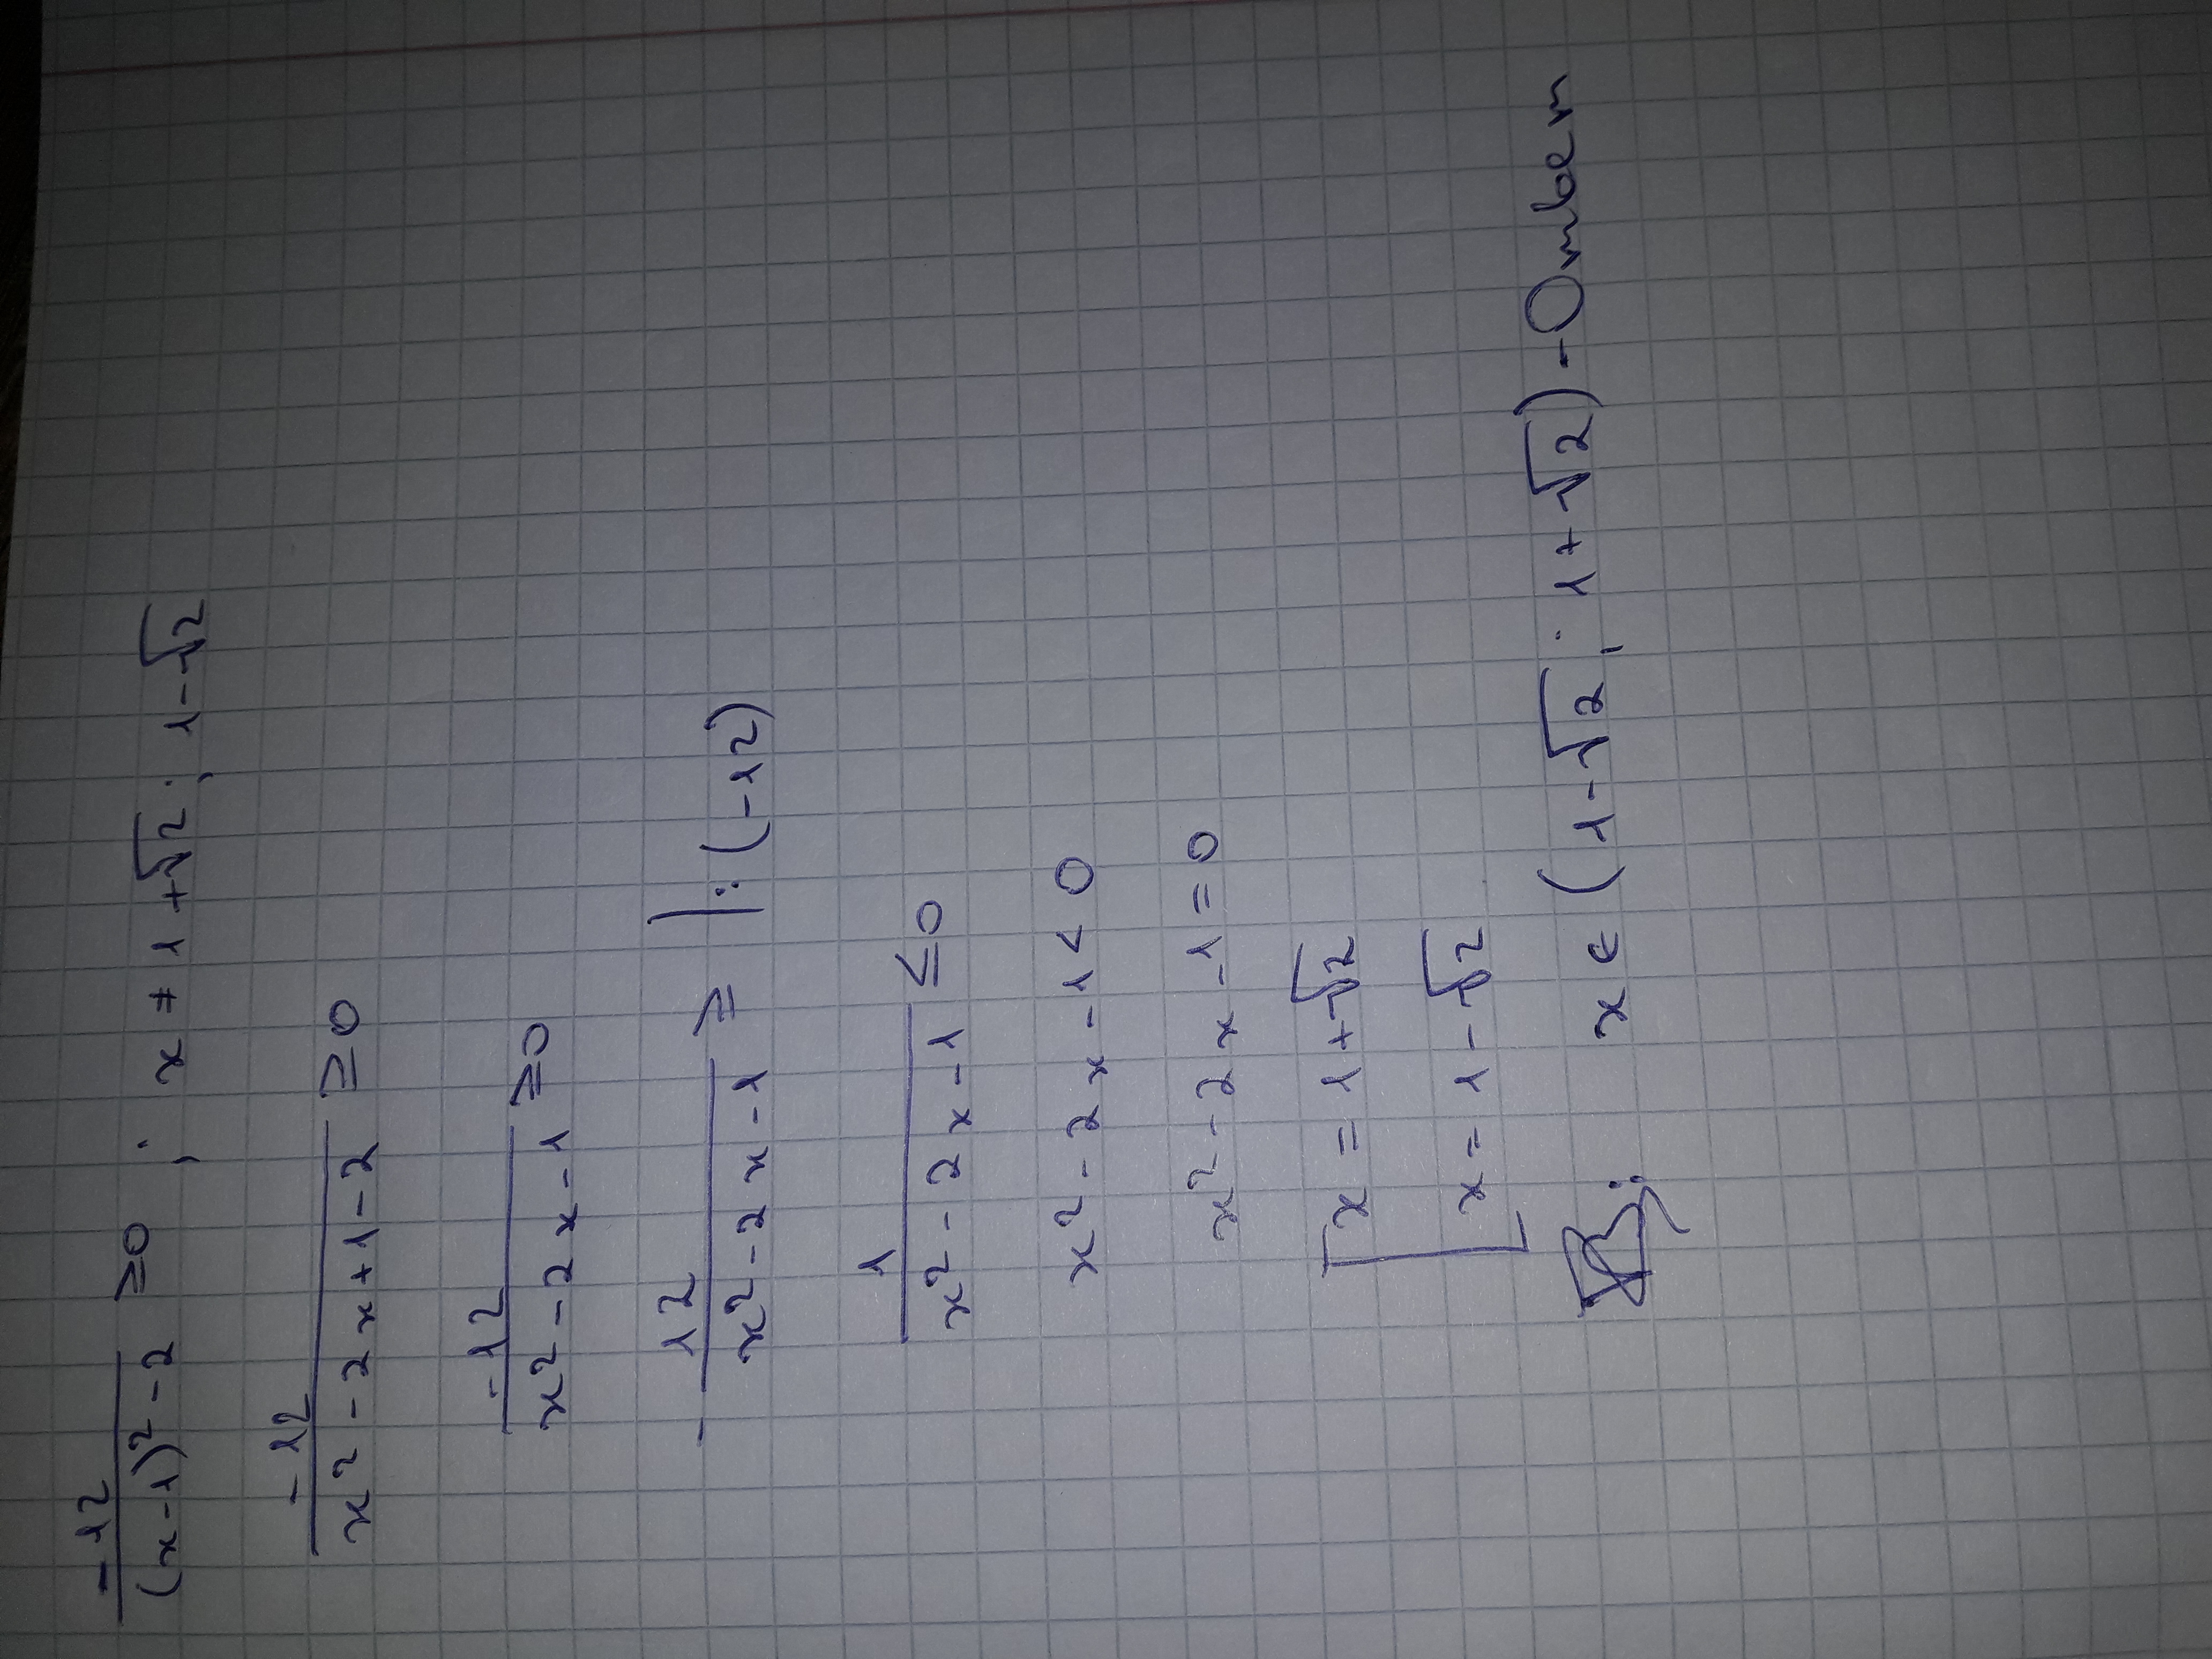 -12/((x-1)²-2) ≥0 ; x ≠ 1+√2 ; 1-√2
-12/(x²-2x+1-2) ≥0
-12/(x²-2x-1) ≥0
- 12/(x²-2x-1) ≥ |:(-12)
1/(x²-2x-1) ≤0
x²-2x-1<0
x²-2x-1=0
[x=1+√2
x=1-√2
x∈(1-√2; 1+√2)-Ответ